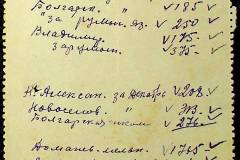 Болгарск. " 185
"за румын. яз. 250
Владимир. 175
за румын. 375
Н. Алексан. за декабрь 208
Новоселов. " 313
Болгарская школ 276
1765